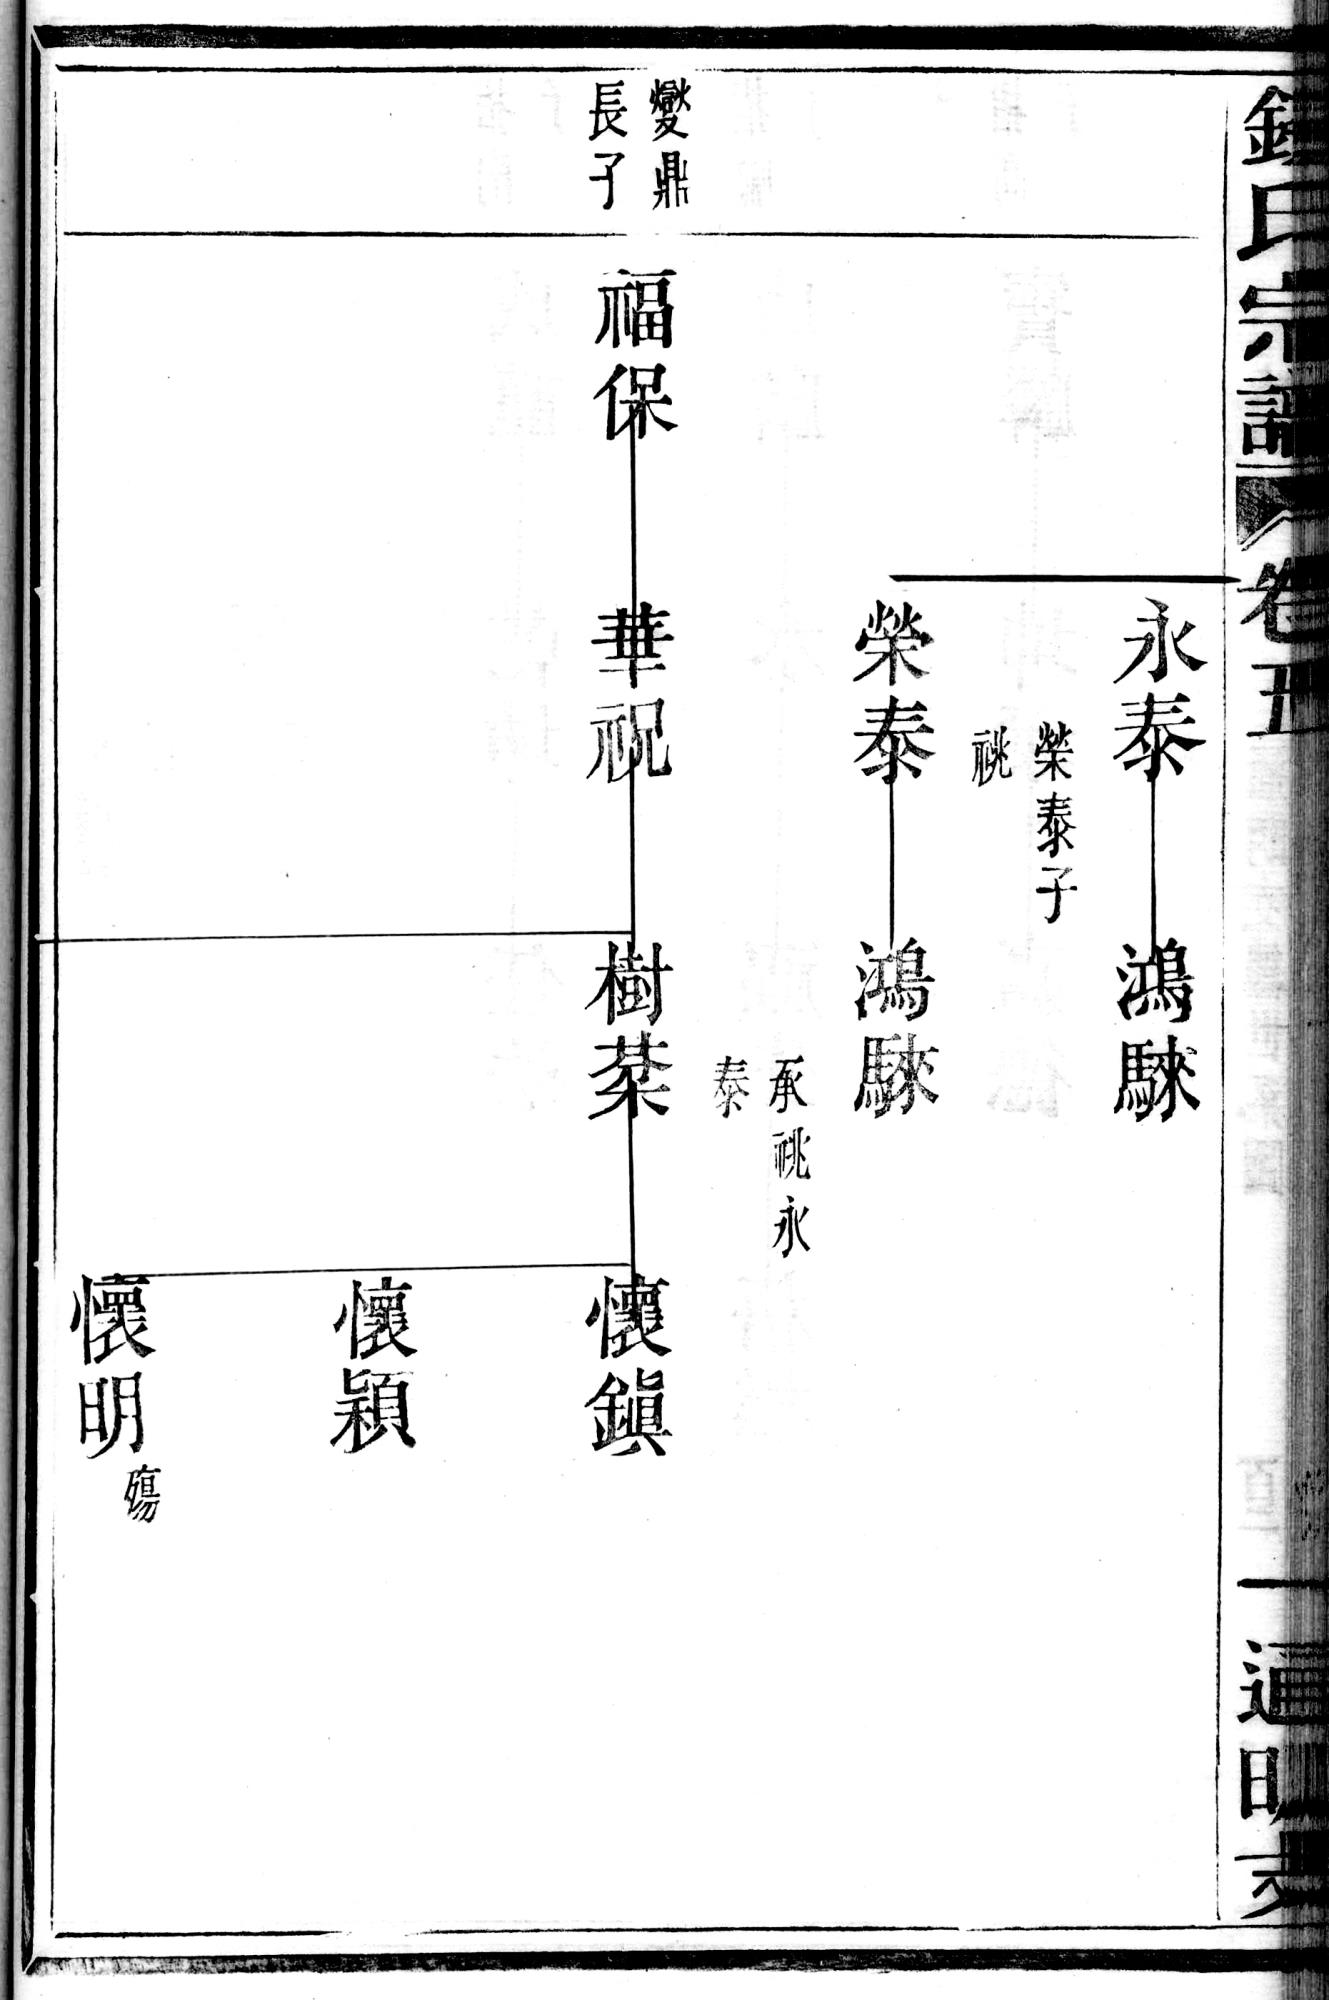 氏宗譜
卷五
通明支
永泰
鴻騋
榮泰子
祧
榮泰
鴻騋
承祧永
泰
燮鼎
長子
福保
華祝
樹棻
懷鎭
懷穎
懷明
殤